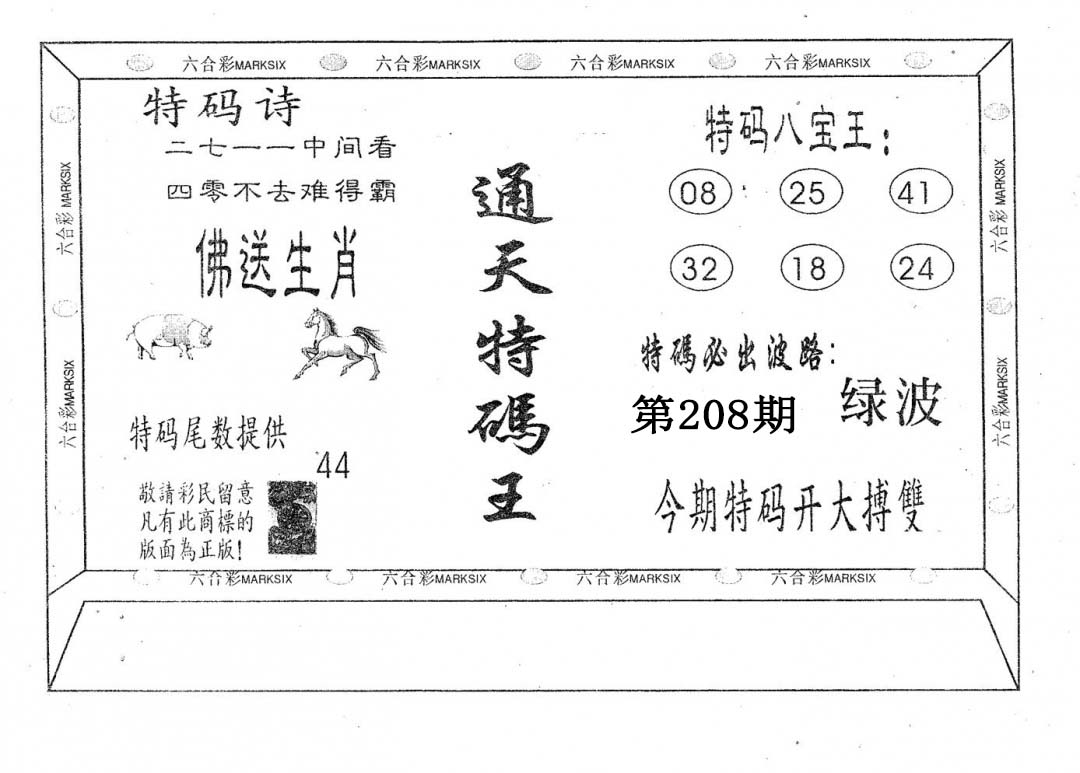 六合彩MARKSIX 六合彩MARKSIX 六合彩MARKSIX 六合彩MARKSIX
六合彩 MARKSIX
六合彩MARKSIX
特码诗
二七一一中间看
四零不去难得霸
佛送生肖
特码尾数提供
44
敬請彩民留意
凡有此商標的
版面為正版!
通天特碼王
特码八宝王:
08 25 41
32 18 24
特碼必出波路:
第208期
绿波
今期特码开大搏雙
六合彩 MARKSIX
六合彩MARKSIX
六合彩MARKSIX 六合彩MARKSIX 六合彩MARKSIX 六合彩MARKSIX